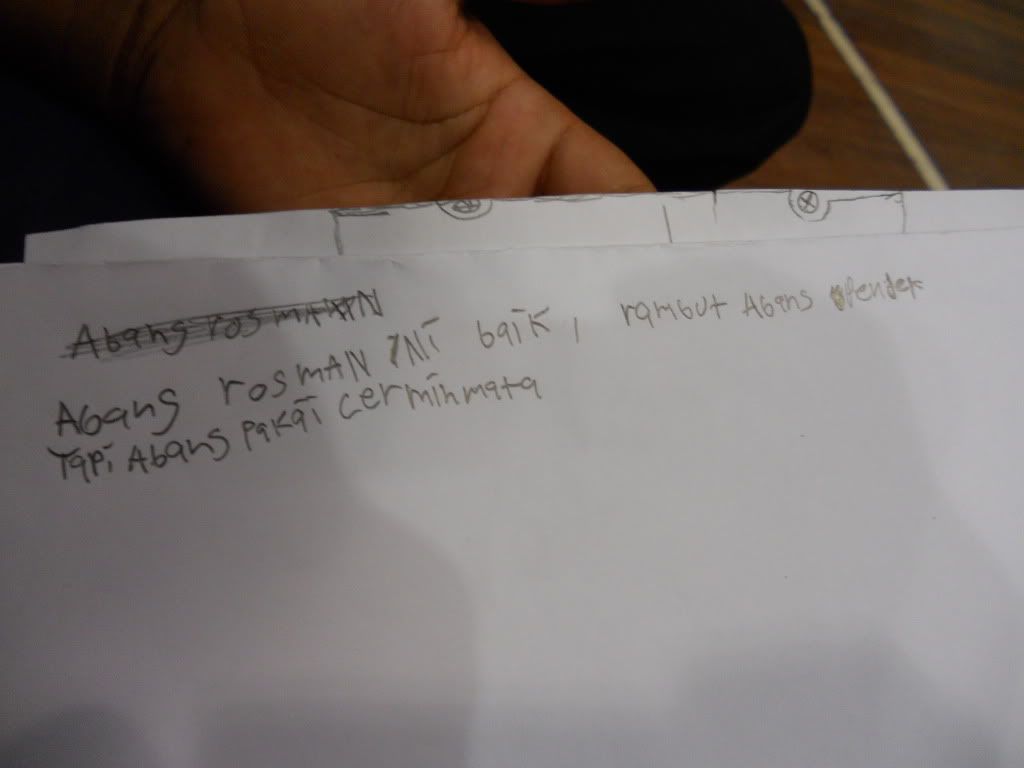 Abang rosmAN
Abang rosmAN INi baik, rambut Abang Pendek
Tapi Abang pakai cerminmata